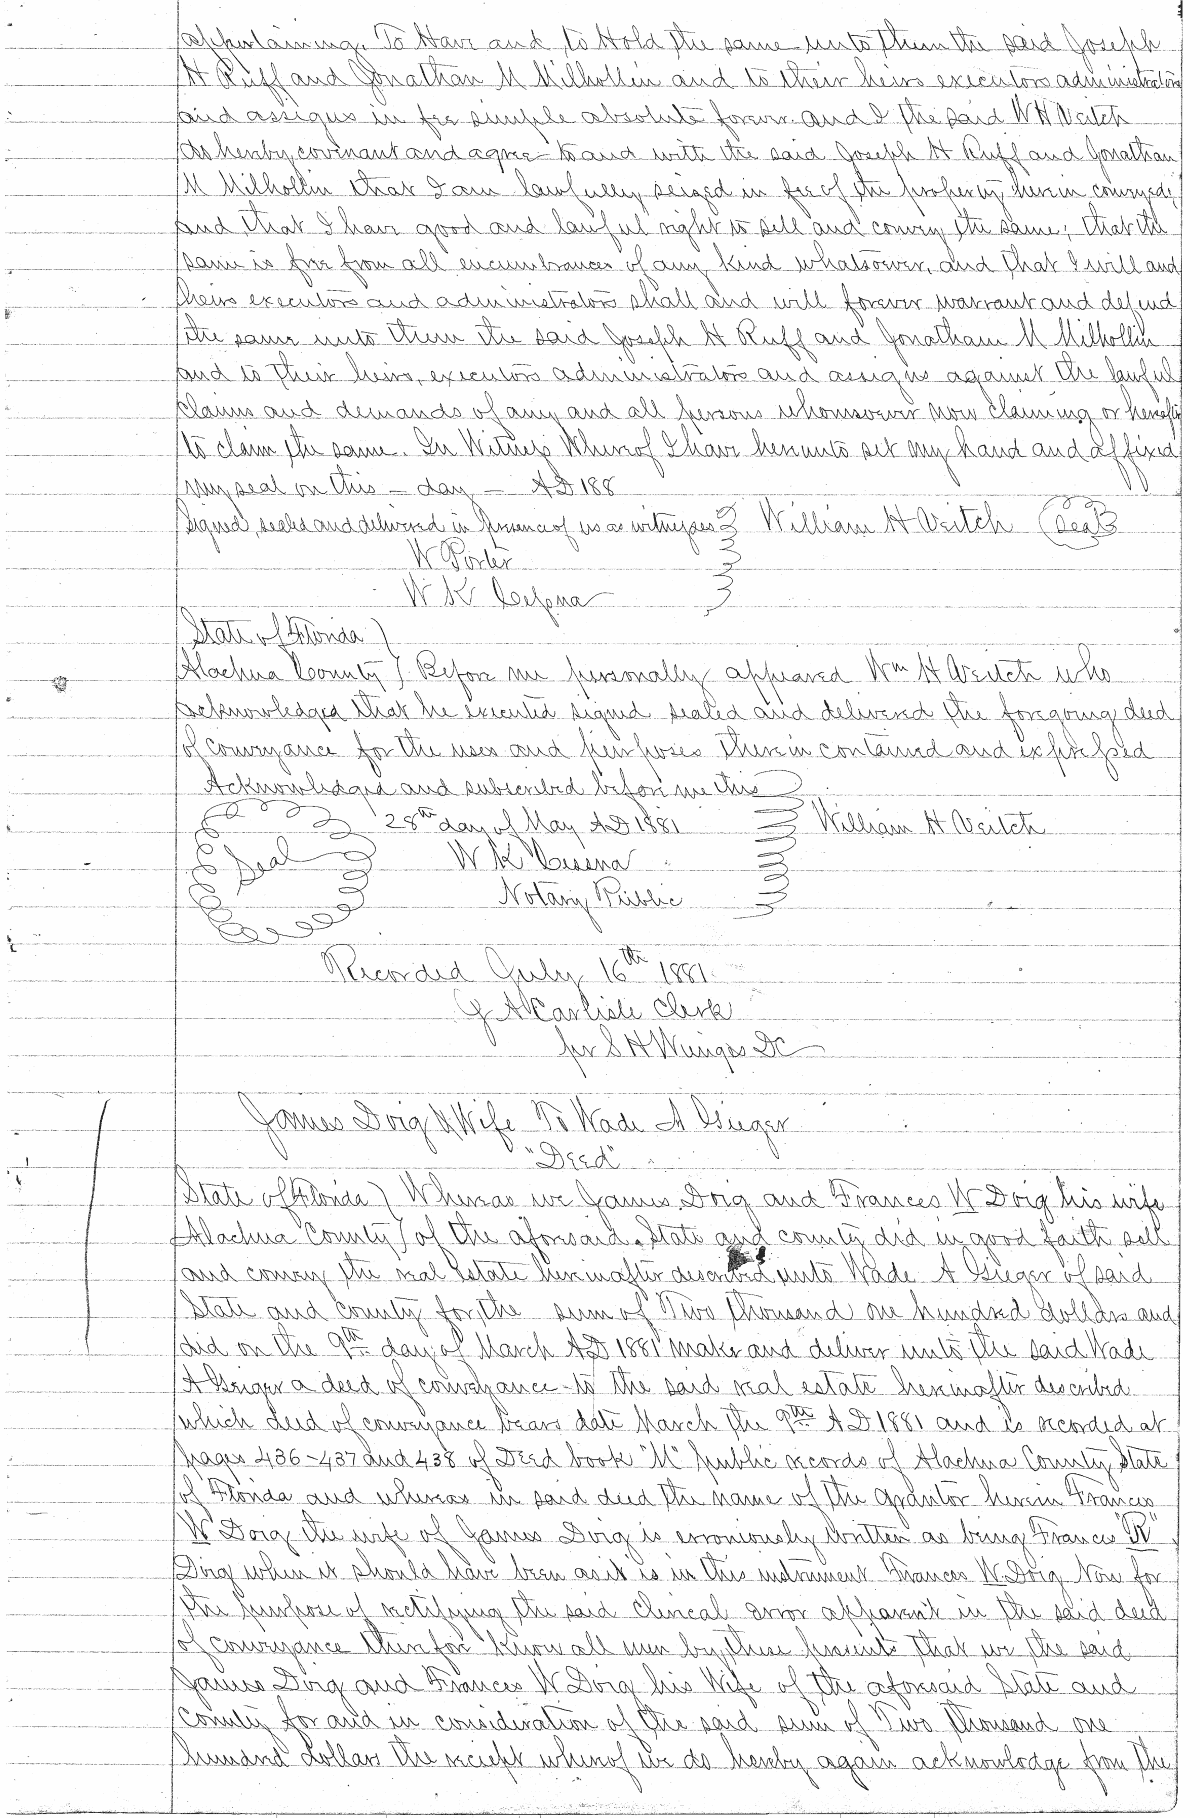 appertaining. To Have and to Hold the same unto them the said Joseph
H Ruff and Jonathan M Milhollin and to their heirs executors administrators
and assigns in fee simple absolute forever. and I the said W H Veitch
do hereby covinant and agree to and with the said Joseph H Ruff and Jonathan
M Milhollin that I am lawfully seized in fee of the property herein conveyed;
and that I have good and lawful right to sell and convey the same; that the
same is free from all encumbrances of any kind whatsoever, and that I will and
heirs executors and administrators shall and will forever warrant and defend
the same unto them the said Joseph H Ruff and Jonathan M Milhollin
and to their heirs, executors administrators and assigns against the lawful
claims and demands of any and all persons whomsoever now claiming or hereafter
to claim the same. In Witness Whereof I have hereunto set my hand and affixed
my seal on this – day – AD 188
Signed, sealed and delivered in presence of us as witnesses William H Veitch Seal
W Porter
W K Cessna
State of Florida )
Alachua County ) Before me personally appeared Wm H Veitch who
acknowledged that he executed signed sealed and delivered the foregoing deed
of conveyance for the uses and purposes therein contained and expressed
Acknowledged and subscribed before me this
28th day of May AD 1881 William H Veitch
Seal W K Cessna
Notary Public
Recorded July 16th 1881
J A Carlisle Clerk
per S H Wienges DC
James Doig & Wife To Wade A Gieger
"Deed"
State of Florida ) Whereas we James Doig and Frances W Doig his wife
Alachua County ) of the aforesaid State and county did in good faith sell
and convey the real estate hereinafter described unto Wade A Gieger of said
State and county for the sum of Two thousand one hundred dollars and
did on the 9th day of March AD 1881 make and deliver unto the said Wade
A Geiger a deed of conveyance to the said real estate hereinafter described
which deed of conveyance bears date March the 9th AD 1881 and is recorded at
pages 436-437 and 438 of Deed book "M" public records of Alachua County State
of Florida and whereas in said deed the name of the grantor herein Frances
W Doig the wife of James Doig is erroniously written as being Frances "R"
Doig when it should have been as it is in this instrument Frances W Doig Now for
the purpose of rectifying the said clerical error apparent in the said deed
of conveyance therefore Know all men by these presents that we the said
James Doig and Frances W Doig his Wife of the aforesaid State and
County for and in consideration of the said sum of Two thousand one
hundred dollars the reciept whereof we do hereby again acknowledge from the